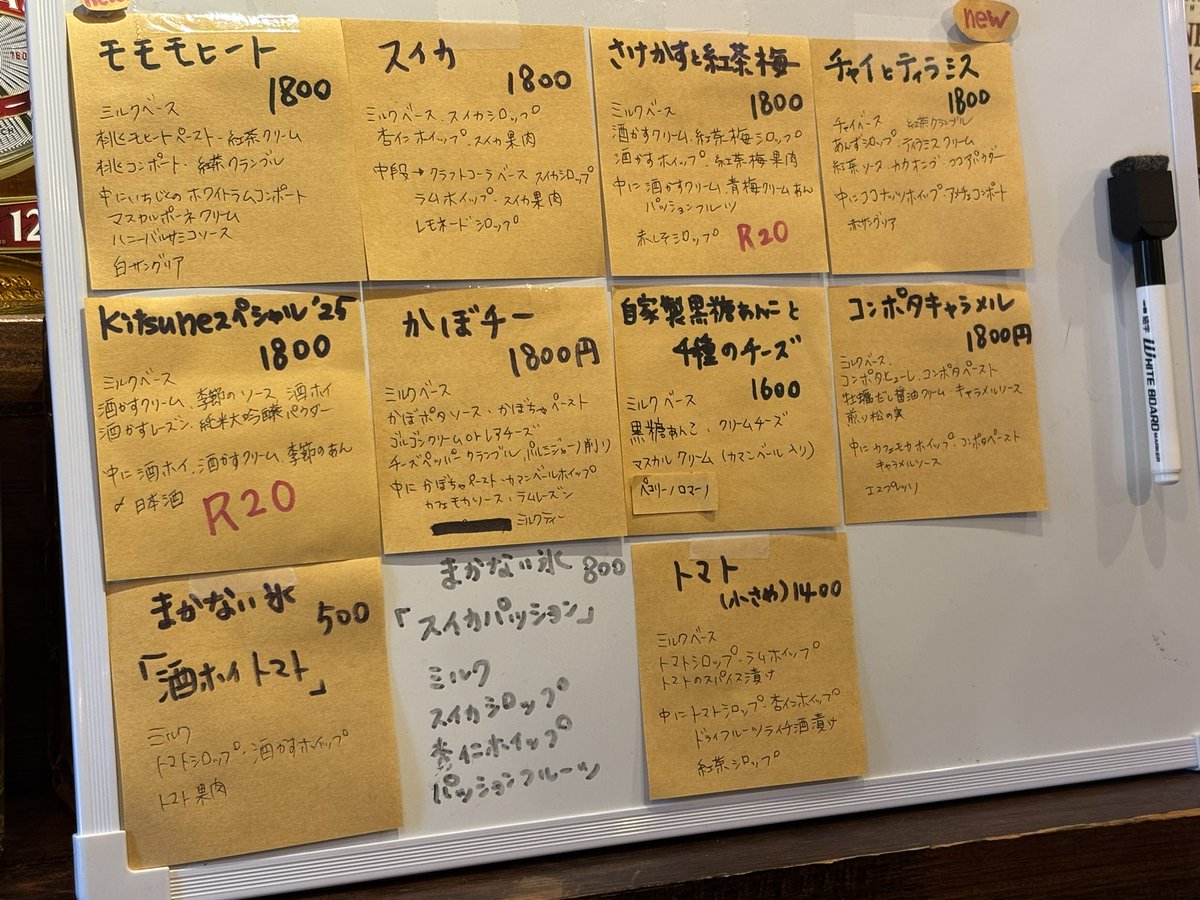 new
モモモヒート
1800
ミルクベース
桃モヒートペースト・紅茶クリーム
桃コンポート・紅茶クランブル
中にいちじくのホワイトラムコンポート
マスカルポーネクリーム
ハニーバルサミコソース
白サングリア
スイカ
1800
ミルクベース・スイカシロップ
杏仁ホイップ・スイカ果肉
中段→クラフトコーラベース スイカシロップ
ラムホイップ・スイカ果肉
レモネードシロップ
さけかすと紅茶梅
1800
ミルクベース
酒かすクリーム・紅茶梅シロップ
酒かすホイップ・紅茶梅果肉
中に 酒かすクリーム、青梅クリームあん
パッションフルーツ
赤しそシロップ R20
new
チャイとティラミス
1800
チャイベース 紅茶クランブル
あんずシロップ・ティラミスクリーム
紅茶ソース・カカオニブ・ココアパウダー
中にココナッツホイップ・アメチェコンポート
赤サングリア
Kitsuneスペシャル'25
1800
ミルクベース
酒かすクリーム・季節のソース 酒ホイ
酒かすレーズン・純米大吟醸パウダー
中に酒ホイ・酒かすクリーム・季節のあん
〆日本酒 R20
かぼチー
1800円
ミルクベース
かぼポタソース・かぼちゃペースト
ゴルゴンクリーム or レアチーズ
チーズペッパークランブル・パルミジャーノ削り
中にかぼちゃペースト・カマンベールホイップ
カフェモカソース・ラムレーズン
ミルクティー
自家製黒糖あんこと
4種のチーズ
1600
ミルクベース
黒糖あんこ、クリームチーズ
マスカルクリーム(カマンベール入り)
ペコリーノロマーノ
コンポタキャラメル
1800円
ミルクベース、
コンポタピューレ・コンポタペースト
牡蠣だし醤油クリーム・キャラメルソース
煎り松の実
中にカフェモカホイップ・コンポタペースト
キャラメルソース
エスプレッソ
まかない氷
500
「酒ホイトマト」
ミルク
トマトシロップ・酒かすホイップ
トマト果肉
まかない氷 800
「スイカパッション」
ミルク
スイカシロップ
杏仁ホイップ
パッションフルーツ
トマト
(小さめ)1400
ミルクベース
トマトシロップ・ラムホイップ
トマトのスパイス漬け
中にトマトシロップ・杏仁ホイップ
ドライフルーツライチ酒漬け
紅茶シロップ
WHITE BOARD
MARKER
12